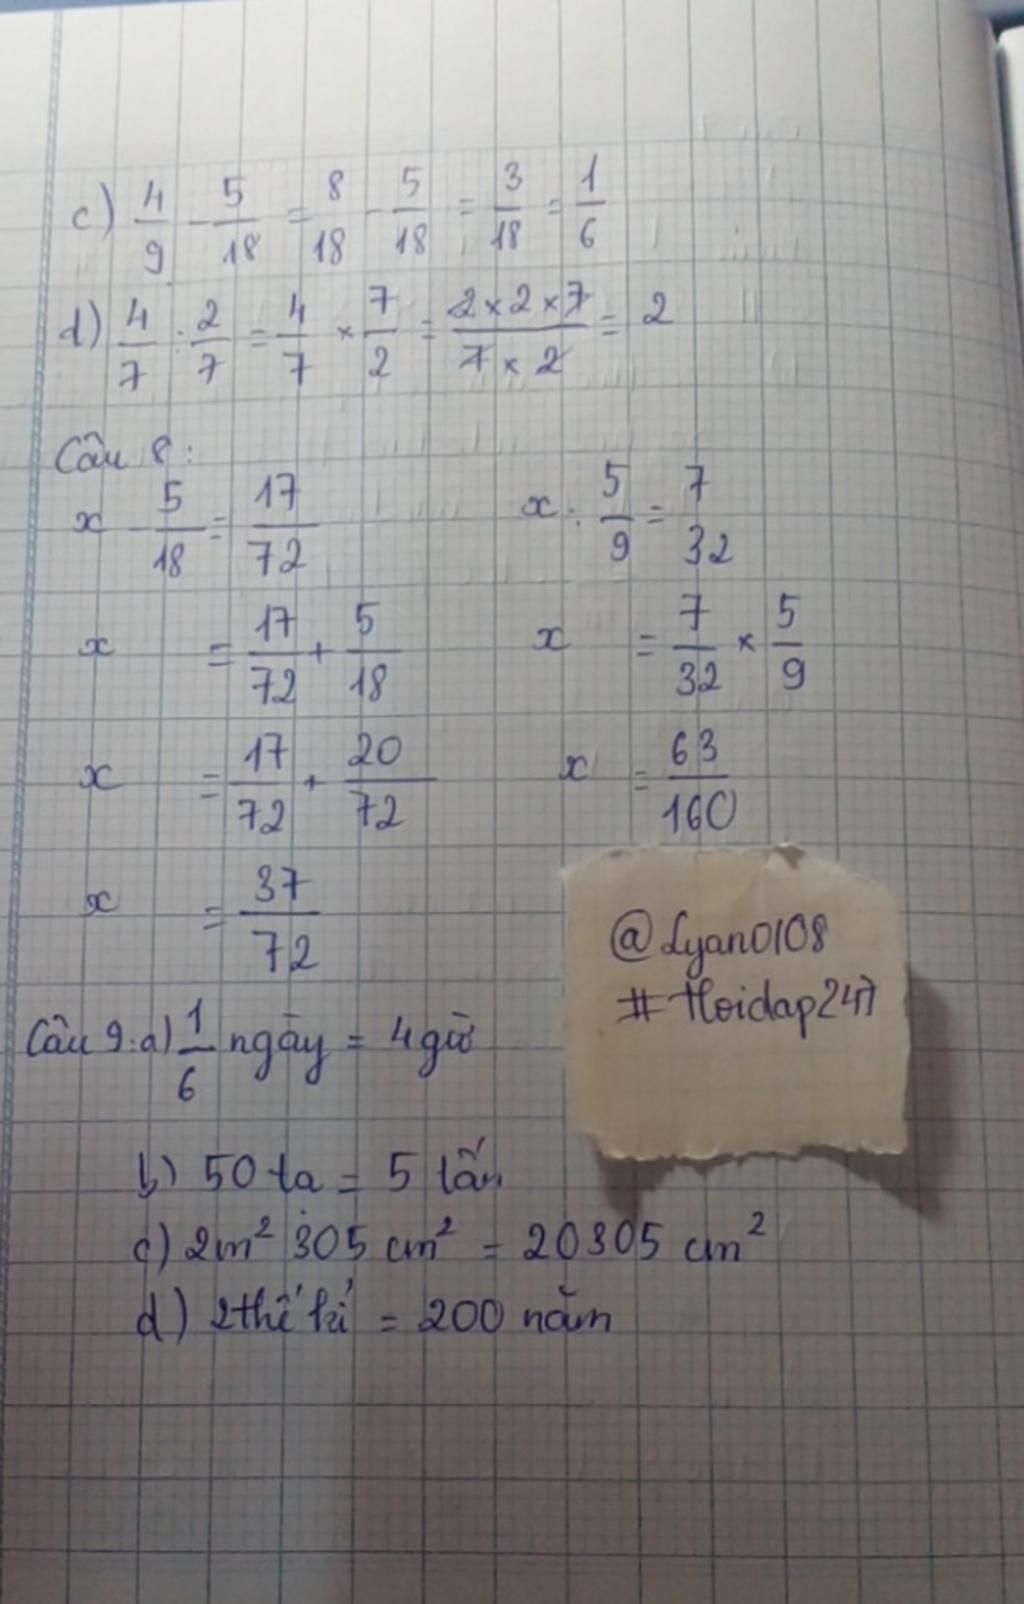 c) 4/9 - 5/18 = 8/18 - 5/18 = 3/18 = 1/6
d) 4/7 : 2/7 = 4/7 × 7/2 = 2×2×7/7×2 = 2
Câu 8:
x - 5/18 = 17/72
x = 17/72 + 5/18
x = 17/72 + 20/72
x = 37/72
x : 5/9 = 7/32
x = 7/32 × 5/9
x = 63/160
@Lyan0108
#Hoidap247
Câu 9: a) 1/6 ngày = 4 giờ
b) 50 tạ = 5 tấn
c) 2m² 305 cm² = 20305 cm²
d) 2 thế kỉ = 200 năm